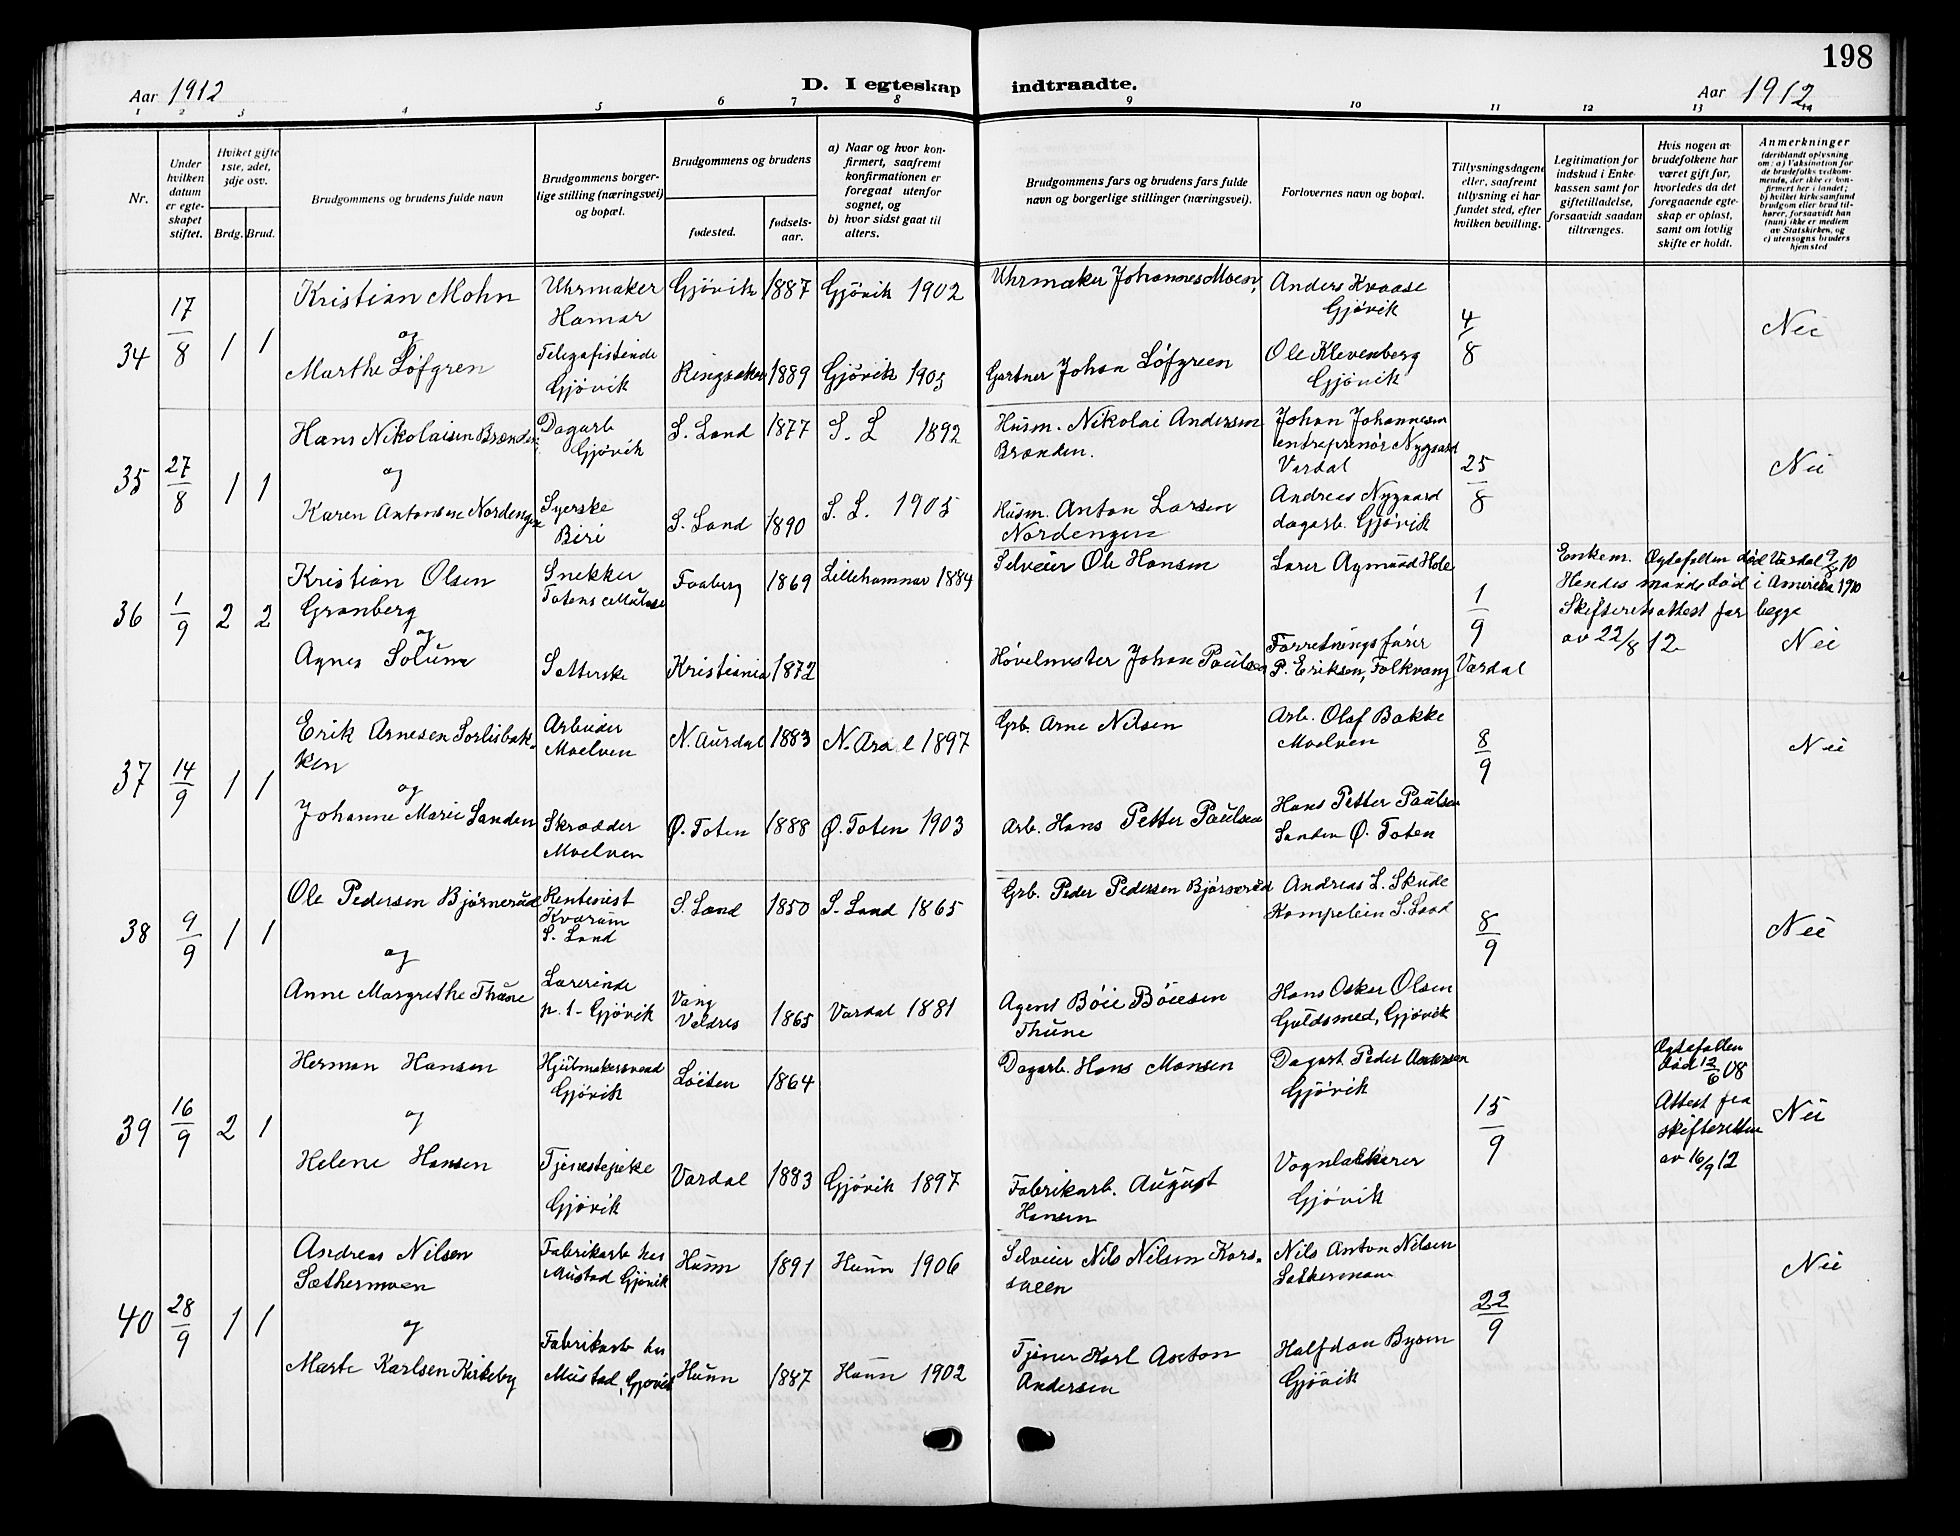 198
Aar 1912
D. I egteskap indtraadte.
Aar 1912
1 2 3 4 5 6 7 8 9 10 11 12 13
Nr.
Under hvilken datum er egteskapet stiftet.
Hviket gifte 1ste, 2det, 3dje osv.
Brdg. Brud.
Brudgommens og brudens fulde navn
Brudgommens borgerlige stilling (næringsvei) og bopæl.
Brudgommens og brudens
fødested.
fødselsaar.
a) Naar og hvor konfirmert, saafremt konfirmationen er foregaat utenfor sognet, og
b) hvor sidst gaat til alters.
Brudgommens fars og brudens fars fulde navn og borgerlige stillinger (næringsvei).
Forlovernes navn og bopæl.
Tillysningsdagene eller, saafremt tillysning ei har fundet sted, efter hvilken bevilling.
Legitimation for indskud i Enkekassen samt for giftetilladelse, forsaavidt saadan tiltrænges.
Hvis nogen av brudefolkene har været gift før, hvorledes da det foregaaende egteskap er opløst, samt om lovlig skifte er holdt.
Anmerkninger
(deriblandt oplysning om: a) Vaksination for de brudefolks vedkommende, der ikke er konfirmert her i landet; b) hvilket kirkesamfund brudgom eller brud tilhører, forsaavidt han (hun) ikke er medlem av Statskirken, og c) utensogns bruders hjemsted
34 17/8 1 1
Kristian Mohn
og
Marthe Løfgren
Uhrmaker Hamar
Gjøvik 1887 Gjøvik 1902
Uhrmaker Johannes Moen,
Anders Kvaase Gjøvik
4/8
Nei
Telegrafistinde Gjøvik
Ringsaker 1889 Gjøvik 1903
Gartner Johan Løfgreen
Ole Klevenberg Gjøvik
35 27/8 1 1
Hans Nikolaisen Brænden
og
Karen Antonsen Nordengen
Dagarb Gjøvik
S. Land 1877 S. L 1892
Husm. Nikolai Andersen Brænden.
Johan Johannesen entreprenør Nygaard Vardal
25/8
Nei
Syerske Biri
S. Land 1890 S. L. 1905
Husm. Anton Larsen Nordengen
Andreas Nygaard dagarb. Gjøvik
36 1/9 2 2
Kristian Olsen Granberg
og
Agnes Solum
Snekker Totens
Faaberg 1869 Lillehammer 1884
Selveier Ole Hansen
Lærer Agmund Hole
1/9
Vardal
Enkem. Ægtefællen død Vardal 9/8 10
Hendes mand død i Amerika 1910
Skifterets attest for begge
av 22/8 12
Nei
Sætterske
Kristiania 1872
Høvelmester Johan Paulsen
Forretningsfører P. Eriksen, Folkvang
37 14/9 1 1
Erik Arnesen Sorlisbakken
og
Johanne Marie Sanden
Arbeider Moelven
N. Aurdal 1883 N. Ard l 1897
Grb. Arne Nilsen
Arb. Olaf Bakke Moelven
8/9
Nei
Skrædder Moelven
Ø. Toten 1888 Ø. Toten 1903
Arb. Hans Petter Paulsen
Hans Petter Paulsen Sanden Ø. Toten
38 9/9 1 1
Ole Pedersen Bjørnerud
og
Anne Margrethe Thune
Rentenist Kvarum S. Land
S. Land 1850 S. Land 1865
Grb. Peder Pedersen Bjørnerud
Andreas L. Skude Kompelien S. Land
8/9
Nei
Lærerinde p. t. Gjøvik
Vang Valdres 1865 Vardal 1881
Agent Bøie Bøiesen Thune
Hans Oskar Olsen Guldsmed, Gjøvik
39 16/9 2 1
Herman Hansen
og
Helene Hansen
Hjulmakersvend Gjøvik
Løiten 1864
Dagarb. Hans Monsen
Dagarb. Peder Andersen Gjøvik
15/9
Ægtefællen død 12/6 08
Attest fra skifteretten av 16/9 12
Nei
Tjenestepike Gjøvik
Vardal 1883 Gjøvik 1897
Fabrikarb. August Hansen
Vognlakerer Gjøvik
40 28/9 1 1
Andreas Nilsen Sæthermoen
og
Marte Karlsen Kirkeby
Fabrikarb hos Mustad Gjøvik
Hunn 1891 Hunn 1906
Selveier Nils Nilsen Korsveen
Nils Anton Nilsen Sæthermoen
22/9
Nei
Fabrikarb hos Mustad, Gjøvik
Hunn 1887 Hunn 1902
Tjener Karl Anton Andersen
Halfdan Bysen Gjøvik